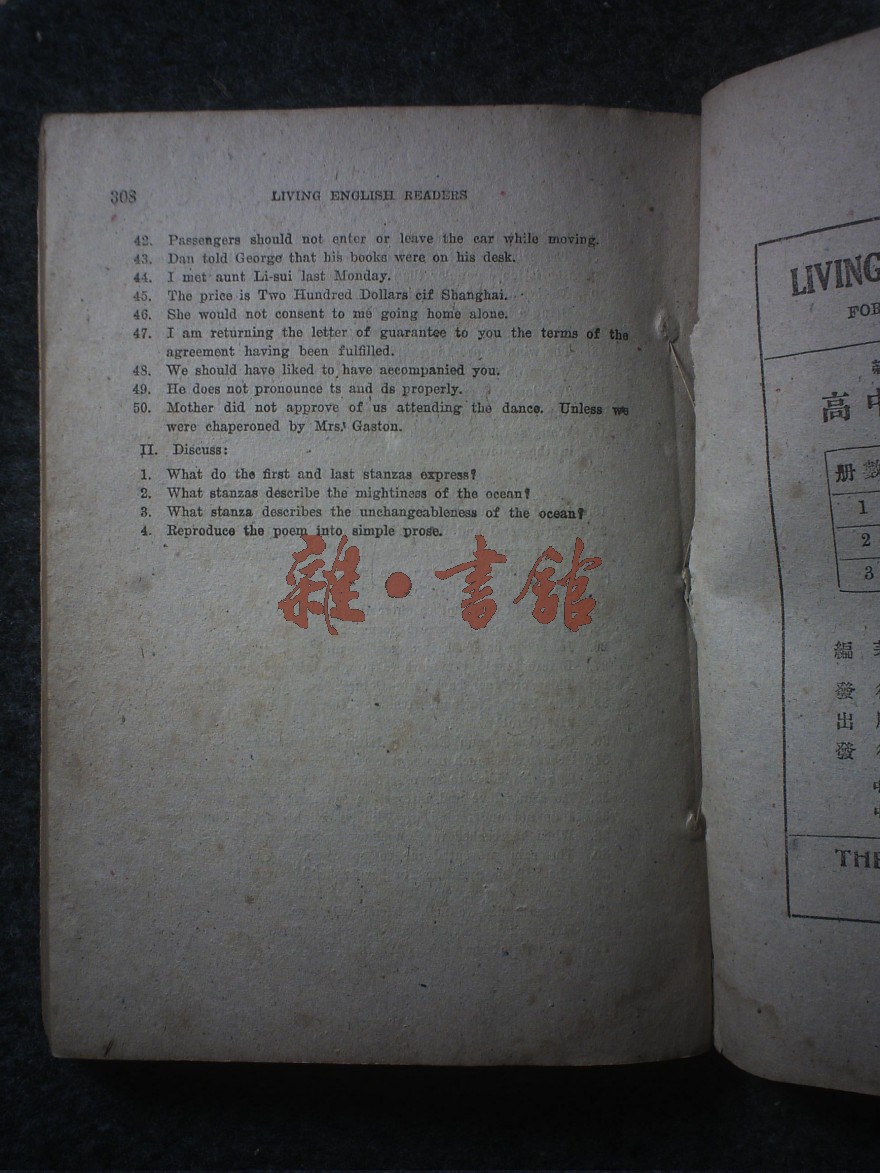 308
LIVING ENGLISH READERS
42. Passengers should not enter or leave the car while moving.
43. Dan told George that his books were on his desk.
44. I met aunt Li-sui last Monday.
45. The price is Two Hundred Dollars cif Shanghai.
46. She would not consent to me going home alone.
47. I am returning the letter of guarantee to you the terms of the
agreement having been fulfilled.
48. We should have liked to have accompanied you.
49. He does not pronounce ts and ds properly.
50. Mother did not approve of us attending the dance. Unless we
were chaperoned by Mrs. Gaston.
II. Discuss:
1. What do the first and last stanzas express?
2. What stanzas describe the mightiness of the ocean?
3. What stanza describes the unchangeableness of the ocean?
4. Reproduce the poem into simple prose.
雜•書館
LIVING
FOR
高中
册數
1
2
3
編
發
出
發
THE